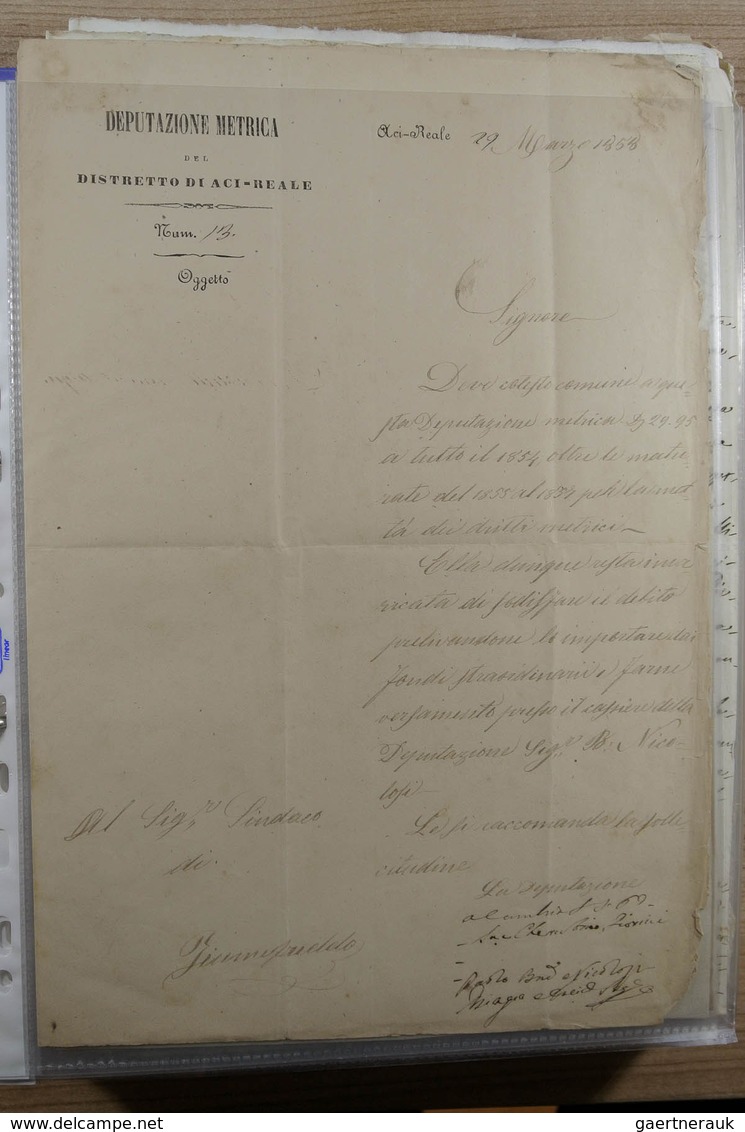 DEPUTAZIONE METRICA
DEL
DISTRETTO DI ACI=REALE
Num. 13.
Oggetto
Aci-Reale 29 Marzo 1858
Signore
Deve cotesto comune a que-
sta Deputazione metrica D 29.95
a tutto il 1854, oltre le matu-
rate del 1855 al 1857 per la me-
tà dei dritti metrici
Ella dunque resta inca-
ricata di sodisfare il debito
prelevandone lo importare dai
fondi straordinarii e farne
versamento presso il cassiere della
Deputazione Sigre B. Nico-
losi
Le si raccomanda la solle-
citudine
La Deputazione
Al Sigre Sindaco
di
Fiumefreddo
linear
gaertnerauk